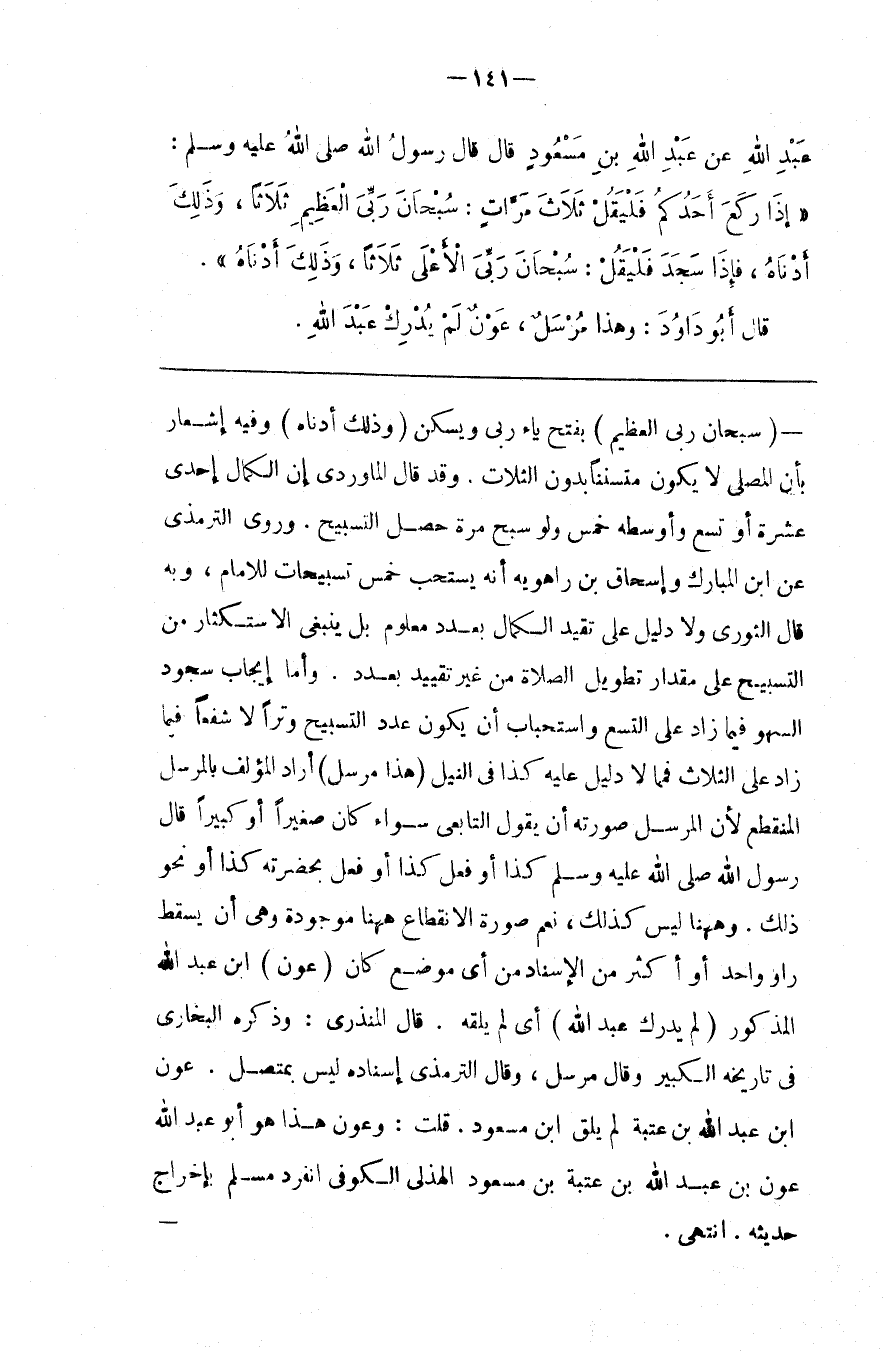 —١٤١—
عَبْدِ اللهِ عن عَبْدِ اللهِ بنِ مَسْعُودٍ قال قال رسولُ الله صلى اللهُ عليه وسلم :
« إِذَا رَكَعَ أَحَدُكُمُ فَلْيَقُلْ ثَلَاثَ مَرَّاتٍ : سُبْحَانَ رَبِّىَ الْعَظِيمِ ثَلَاثًا ، وَذَلِكَ
أَدْنَاهُ ، فإِذَا سَجَدَ فَلْيَقُلْ : سُبْحَانَ رَبِّىَ الْأَعْلَى ثَلَاثًا ، وَذَلِكَ أَدْنَاهُ » .
قال أَبُو دَاوُدَ : وهذا مُرْسَلٌ ، عَوْنٌ لَمْ يُدْرِكْ عَبْدَ اللهِ .
— ( سبحان ربى العظيم ) بفتح ياء ربى ويسكن ( وذلك أدناه ) وفيه إشعار
بأن المصلى لا يكون متسنناً بدون الثلاث . وقد قال الماوردى إن الكمال إحدى
عشرة أو تسع وأوسطه خمس ولو سبح مرة حصل التسبيح . وروى الترمذى
عن ابن المبارك وإسحاق بن راهويه أنه يستحب خمس تسبيحات للامام ، وبه
قال الثورى ولا دليل على تقيد الكمال بعدد معلوم بل ينبغى الاستكثار من
التسبيح على مقدار تطويل الصلاة من غير تقييد بعدد . وأما إيجاب سجود
السهو فيما زاد على التسع واستحباب أن يكون عدد التسبيح وتراً لا شفعاً فيما
زاد على الثلاث فمما لا دليل عليه كذا فى النيل ( هذا مرسل ) أراد المؤلف بالمرسل
المنقطع لأن المرسل صورته أن يقول التابعى سواء كان صغيراً أو كبيراً قال
رسول الله صلى الله عليه وسلم كذا أو فعل كذا أو فعل بحضرته كذا أو نحو
ذلك . وههنا ليس كذلك ، نعم صورة الانقطاع ههنا موجودة وهى أن يسقط
راو واحد أو أكثر من الإسناد من أى موضع كان ( عون ) ابن عبد الله
المذكور ( لم يدرك عبد الله ) أى لم يلقه . قال المنذرى : وذكره البخارى
فى تاريخه الكبير وقال مرسل ، وقال الترمذى إسناده ليس بمتصل . عون
ابن عبد الله بن عتبة لم يلق ابن مسعود . قلت : وعون هذا هو أبو عبد الله
عون بن عبد الله بن عتبة بن مسعود الهذلى الكوفى انفرد مسلم بإخراج
حديثه . انتهى . —